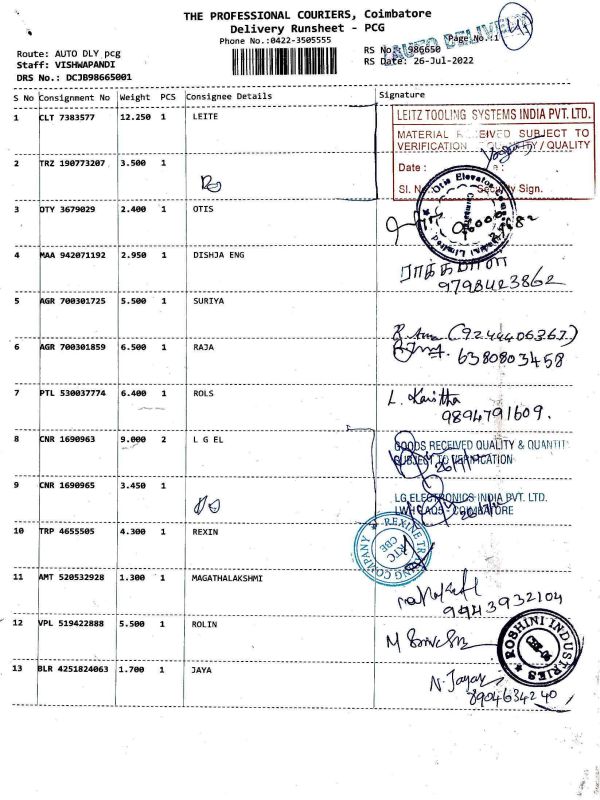 THE PROFESSIONAL COURIERS, Coimbatore
Delivery Runsheet - PCG
Phone No.:0422-3505555
Page No.:1
AUTO DELIVERY
Route: AUTO DLY pcg
Staff: VISHWAPANDI
DRS No.: DCJB98665001
RS No.: 986650
RS Date: 26-Jul-2022
S No Consignment No Weight PCS Consignee Details Signature
1 CLT 7383577 12.250 1 LEITE
LEITZ TOOLING SYSTEMS INDIA PVT. LTD.
MATERIAL RECEIVED SUBJECT TO
VERIFICATION QUANTITY / QUALITY
Date :
Sl. No. Security Sign.
2 TRZ 190773207 3.500 1
3 DTY 3679029 2.400 1 OTIS
Otis Elevator Company (India) Limited
Coimbatore
4 MAA 942071192 2.950 1 DISHJA ENG
9798423862
5 AGR 700301725 5.500 1 SURIYA
(9244406367)
6 AGR 700301859 6.500 1 RAJA
6380803458
7 PTL 530037774 6.400 1 ROLS
L. Kavitha
9894791609.
8 CNR 1690963 9.000 2 L G EL
GOODS RECEIVED QUALITY & QUANTITY
SUBJECT TO VERIFICATION
9 CNR 1690965 3.450 1
LG ELECTRONICS INDIA PVT. LTD.
COIMBATORE
10 TRP 4655505 4.300 1 REXIN
REXINE TRADING COMPANY
RTC
CBE
11 AMT 520532928 1.300 1 MAGATHALAKSHMI
9443932104
12 VPL 519422888 5.500 1 ROLIN
ROSHINI INDUSTRIES
13 BLR 4251824063 1.700 1 JAYA
8904634240